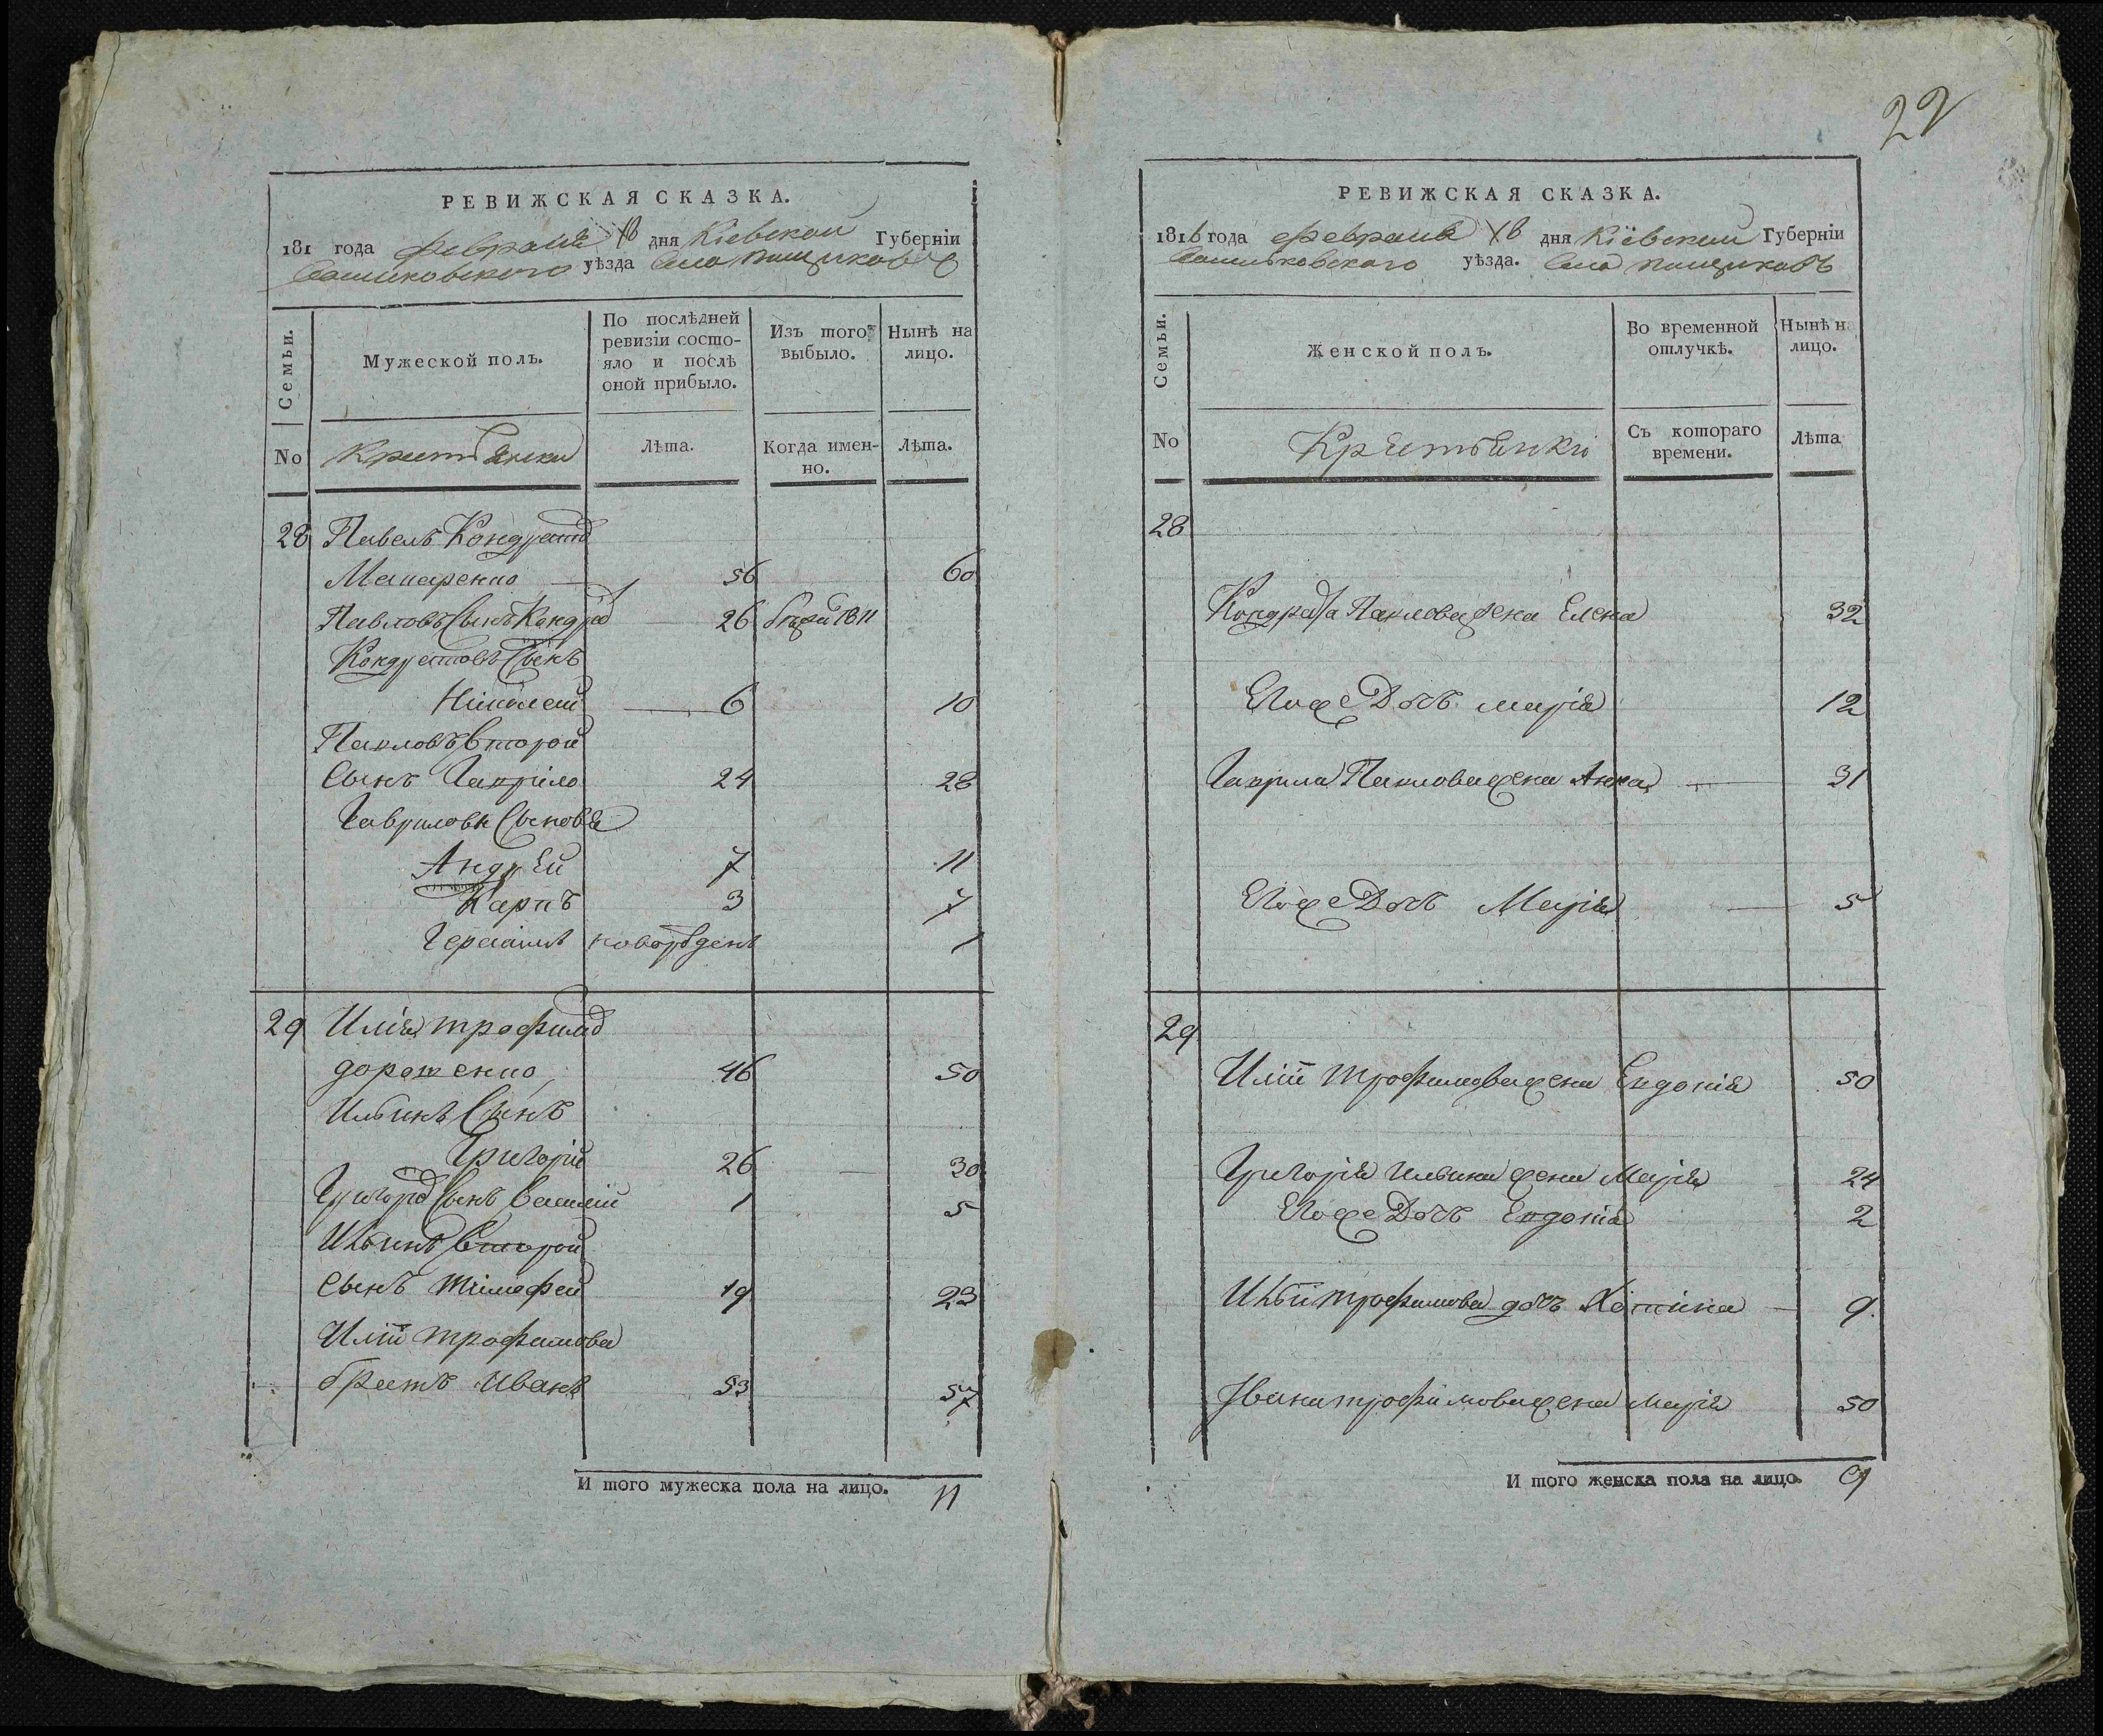 22
РЕВИЖСКАЯ СКАЗКА.
181 года февраля 18 дня Кіевской Губерніи
Васильковскаго уѣзда Села
Семьи.
Мужеской полъ.
По послѣдней ревизіи состо-
яло и послѣ оной прибыло.
Изъ того выбыло.
Нынѣ на лицо.
No
Лѣта.
Когда имен-
но.
Лѣта.
28 Павелъ Кондратов
Макаренко 56 60
Павловъ Сынъ Кондрат 26 1811
Кондратовъ Сынъ
Ніколай 6 10
Павловъ Второй
Сынъ Гавріло 24 28
Гавриловы Сыновья
Андрѣй 7 11
Карпъ 3 7
новорожденъ 1
29 Илія трофимов
дорошенко 46 50
Ильинъ Сынъ
Григорій 26 30
Григоров Сынъ Василій 1 5
Ильинъ Второй
Сынъ тімофей 19 23
Иліи трофимова
братъ Иванъ 53 57
И того мужеска пола на лицо. 11
РЕВИЖСКАЯ СКАЗКА.
1816 года февраля 18 дня Кіевской Губерніи
Васильковскаго уѣзда. Села
Семьи.
Женской полъ.
Во временной отлучкѣ.
Нынѣ на лицо.
No
Съ котораго времени.
Лѣта
28
Кондрата Павлова жена Елена 32
Егоже Дочь марія 12
Гаврила Павлова жена Анна 31
Егоже Дочь Марія 5
29
Иліи трофимова жена Евдокія 50
Григорія ильина жена Марія 24
Егоже Дочь Евдокія 2
Ильи трофимова дочь 9
Ивана трофимова жена марія 50
И того женска пола на лицо. 9